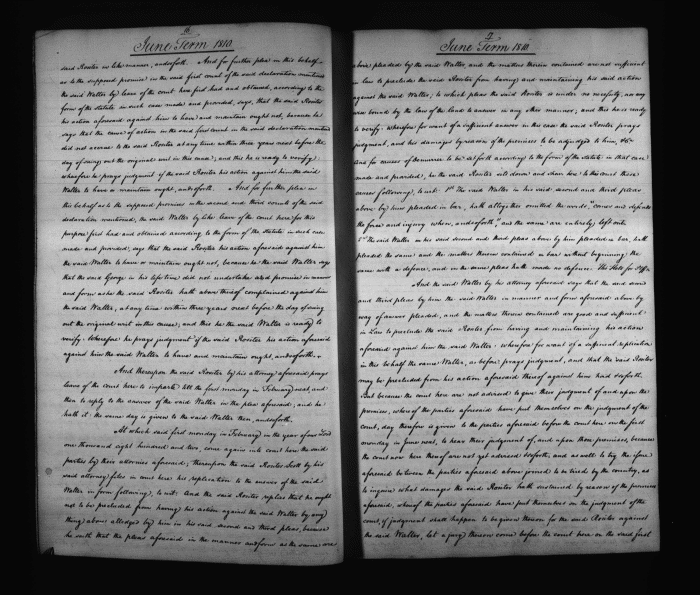 June Term 1810
said Rector in like manner, andsoforth. And for further plea in this behalf
as to the supposed promises in the said first count of the said declaration mentioned
the said Walter by leave of the court here first had and obtained, according to the
form of the statute in such case made and provided, says, that the said Rector
his action aforesaid against him to have and maintain ought not, because he
says that the cause of action in the said first count in the said declaration mentioned
did not accrue to the said Rector at any time within three years next before the
day of suing out the original writ in this cause; and this he is ready to verify:
wherefore he prays judgment if the said Rector his action against him the said
Walter to have or maintain ought, andsoforth. And for further plea in
this behalf as to the supposed promises in the second and third counts of the said
declaration mentioned, the said Walter by like leave of the court here for this
purpose first had and obtained according to the form of the statute in such case
made and provided; says that the said Rector his action aforesaid against him
the said Walter to have or maintain ought not, because he the said Walter says
that the said George in his life time did not undertake and promise in manner
and form as he the said Rector hath above thereof complained against him
the said Walter, at any time within three years next before the day of suing
out the original writ in this cause; and this he the said Walter is ready to
verify: wherefore he prays judgment if the said Rector his action aforesaid
against him the said Walter to have and maintain ought, andsoforth.
And thereupon the said Rector by his attorney aforesaid prays
leave of the court here to imparle till the first monday in February next, and
then to reply to the answer of the said Walter in the plea aforesaid; and he
hath it: the same day is given to the said Walter then, andsoforth.
At which said first monday in February in the year of our Lord
one thousand eight hundred and two, come again into court here the said
parties by their attornies aforesaid; thereupon the said Rector by his
said attorney files in court here his replication to the answer of the said
Walter in form following; to wit: And the said Rector replies that he ought
not to be precluded from having his action against the said Walter by any
thing above alledged by him in his said second and third pleas, because
he saith that the pleas aforesaid in the manner and form as the same are
June Term 1810
above pleaded by the said Walter and the matters therein contained are not sufficient
in law to preclude the said Rector from having and maintaining his said action
against the said Walter; to which pleas the said Rector is under no necessity, or any
wise bound by the law of the land to answer in any other manner; and this he is ready
to verify: wherefore for want of a sufficient answer in this case the said Rector prays
judgment, and his damages by reason of the premises to be adjudged to him, &c.
And for causes of demurrer to be set forth according to the form of the statute in that case
made and provided, he the said Rector sets down and shews to the court these
causes following, to wit: 1st The said Walter in his said second and third pleas
above by him pleaded in bar, hath altogether omitted the words "comes and defends
the force and injury when, andsoforth," and the same are entirely left out:
2nd The said Walter in his said second and third pleas above by him pleaded in bar, hath
pleaded the same and the matters therein contained in bar without beginning the
same with a defence; and in the same pleas hath made no defence.
And the said Walter by his attorney aforesaid says that the said second
and third pleas by him the said Walter in manner and form aforesaid above by
way of answer pleaded; and the matters therein contained are good and sufficient
in Law to preclude the said Rector from having and maintaining his action
aforesaid against him the said Walter: wherefore for want of a sufficient replication
in this behalf the same Walter, as before prays judgment, and that the said Rector
may be precluded from his action aforesaid thereof against him had &soforth.
But because the court here are not advised to give their judgment of and upon the
premises, where of the parties aforesaid have put themselves on the judgment of the
court, day therefore is given to the parties aforesaid before the court here on the first
monday in June next, to hear their judgment of, and upon those premises, because
the court now here thereof are not yet advised &soforth; and as well to try the issue
aforesaid between the parties aforesaid above joined to be tried by the country, as
to inquire what damages the said Rector hath sustained by reason of the premises
aforesaid, whereof the parties aforesaid have put themselves on the judgment of the
court, if judgement shall happen to be given thereon for the said Rector against
the said Walter, let a jury thereon come before the court here on the said first